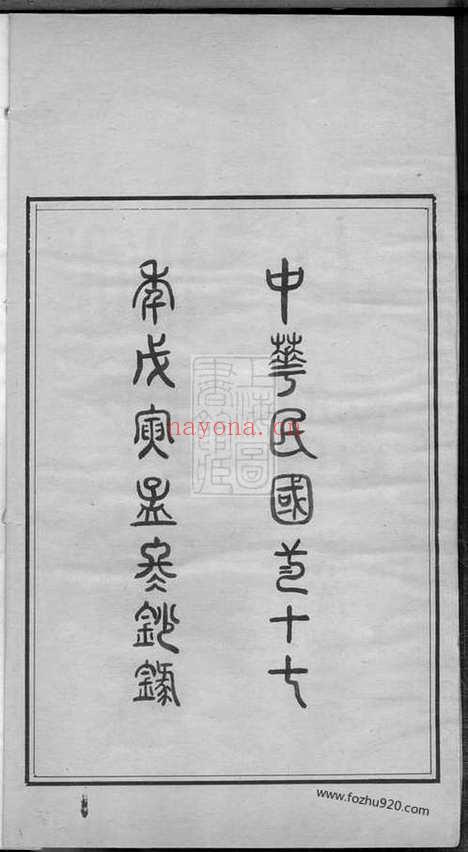 中華民國弍十七
年戊寅孟冬鈔錄
上海圖
書館藏
nayona.cn
www.fozhu920.com